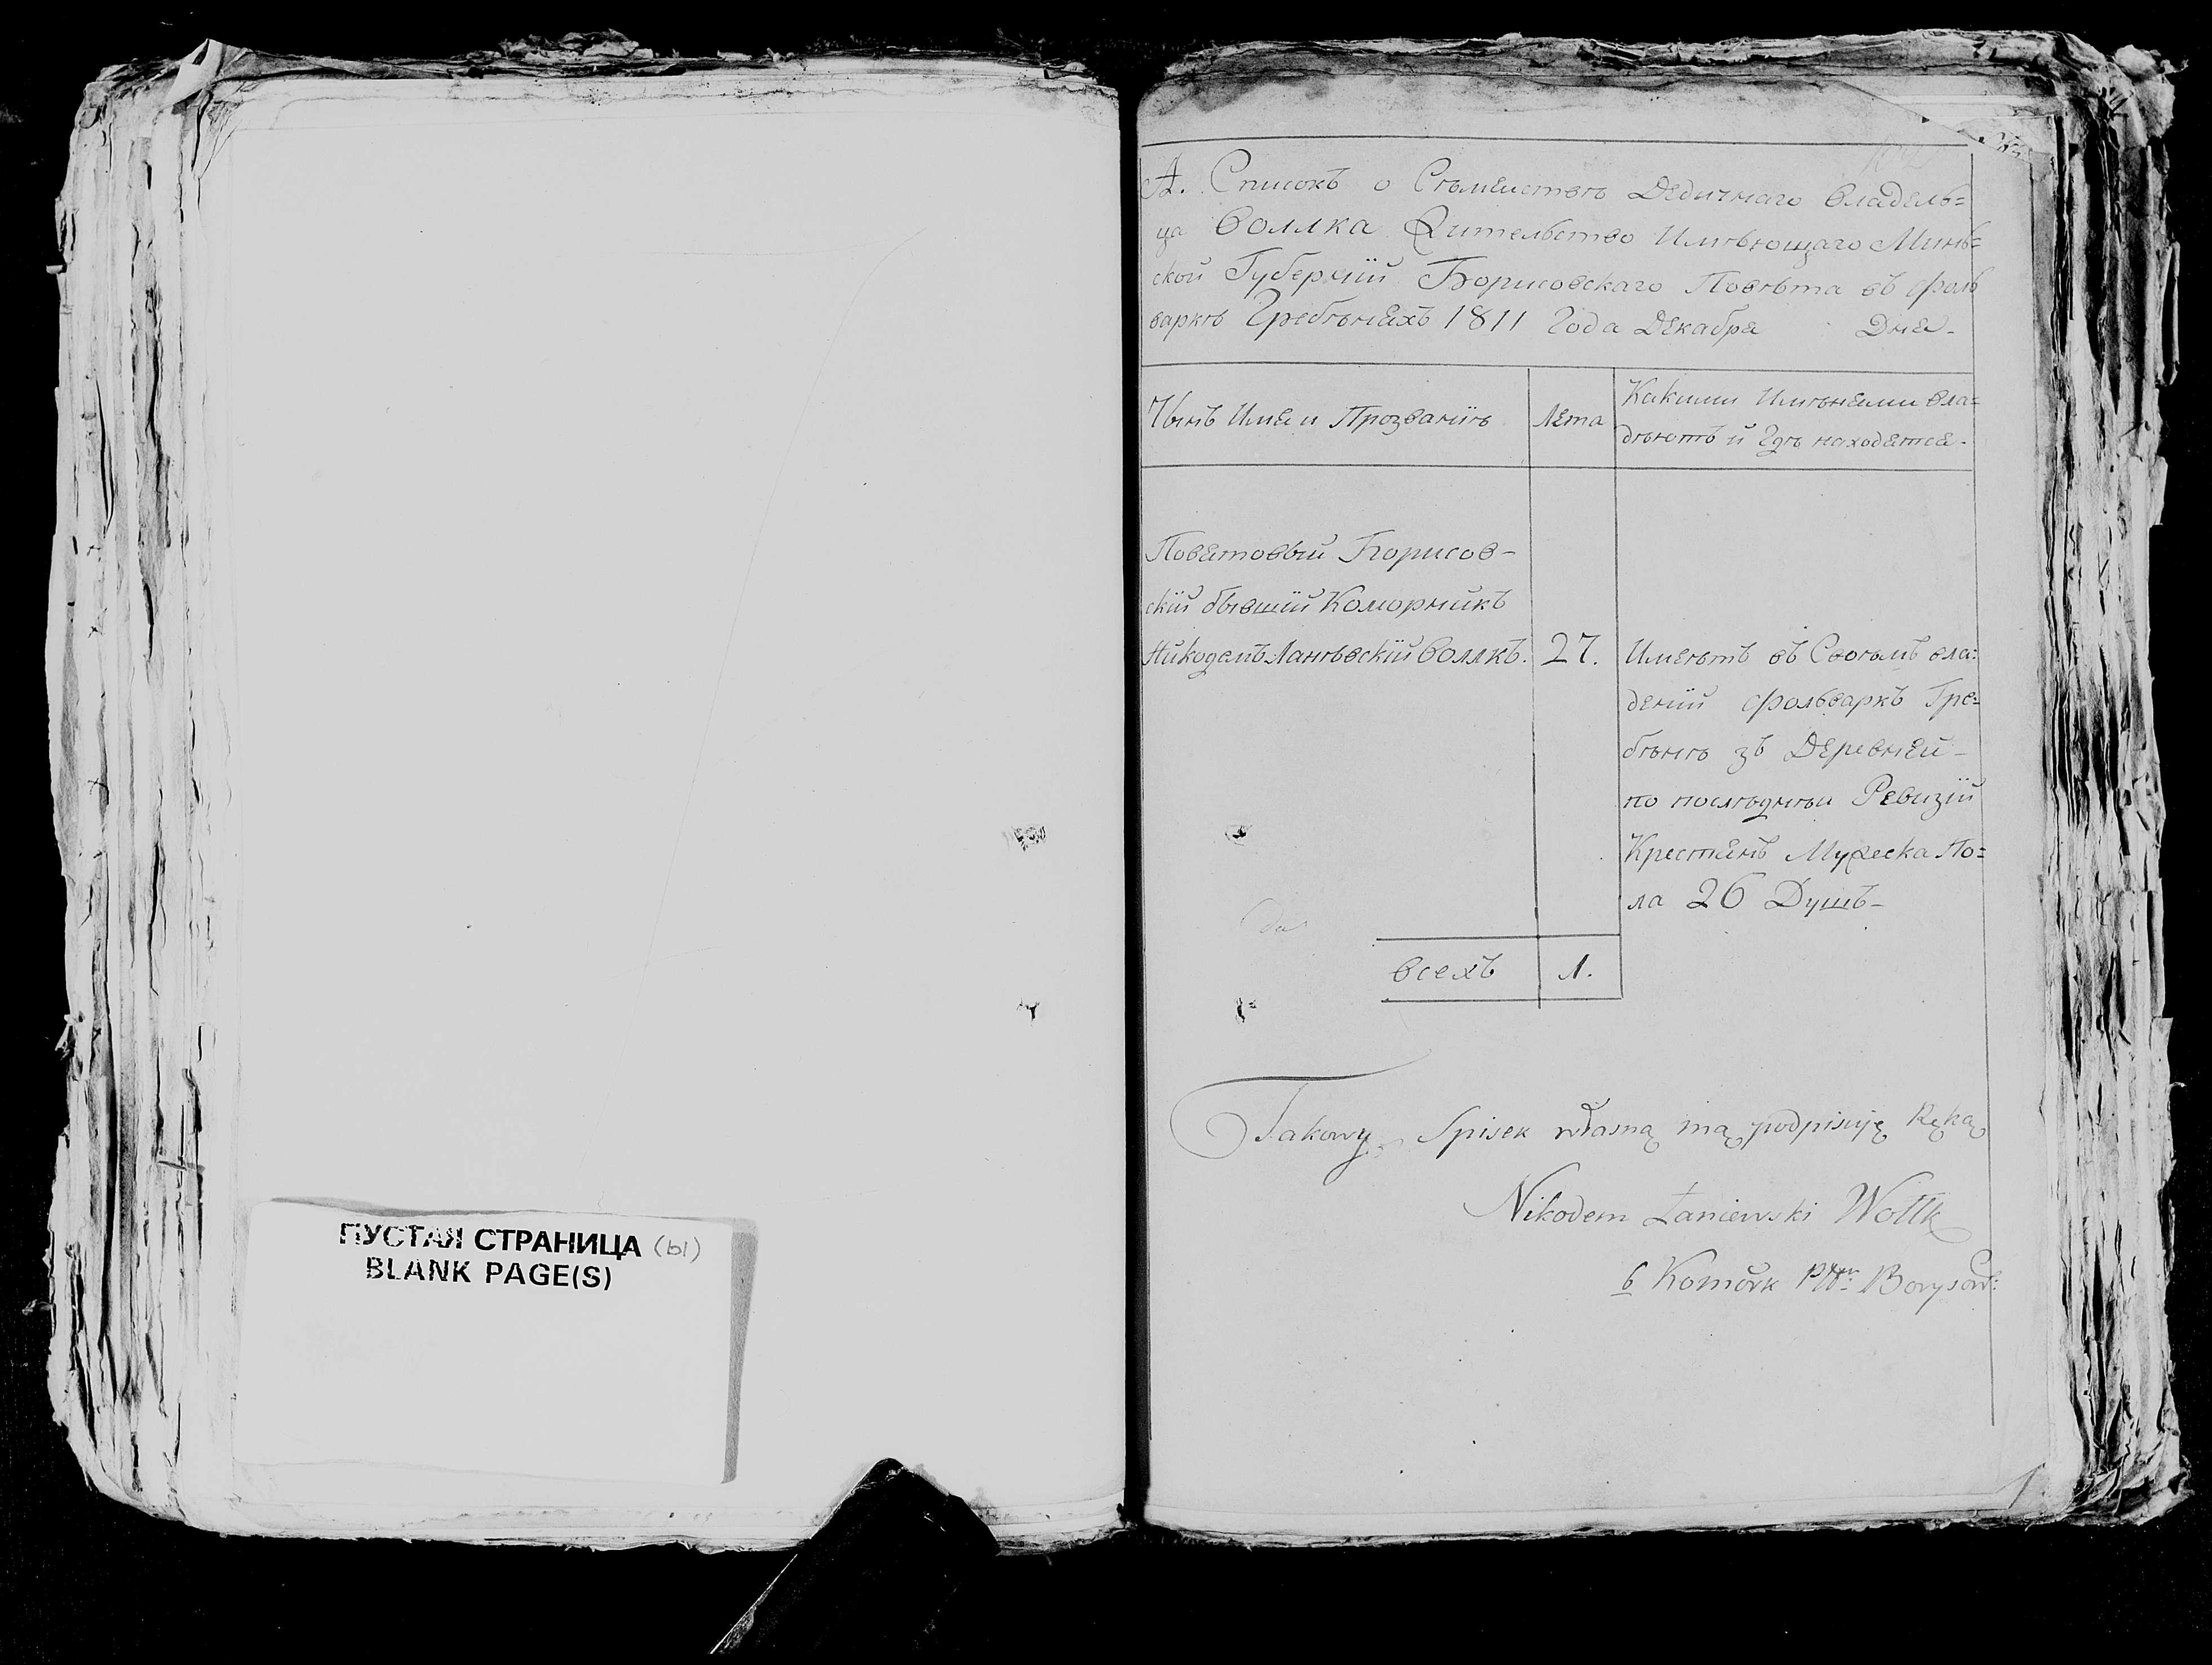 ПУСТАЯ СТРАНИЦА (ы)
BLANK PAGE(S)
А. Списокъ о Съмействѣ Дедичнаго владель=
ца Воллка Жительство Имѣющаго Минь=
ской Губерніи Борисовскаго Повѣта въ фоль
варкѣ Гребѣняхъ 1811 Года Декабря Дня-
Чынъ Имя и Прозваніѣ
Лета
Какими Имѣнями вла=
дѣютъ и Гдѣ находятся-
Повятовый Борисов-
скій бывшій Коморникъ
Никодемъ Ланѣвскій Воллкъ.
27.
Имѣетъ въ Своѣмъ вла=
деніи фольваркъ Гре=
бѣнѣ зъ Деревней-
по послѣднѣи Ревизіи
Крестянъ Мужеска По=
ла 26 Душъ-
Всехъ
1.
Takowy Spisek własną mą podpisuję Ręką
Nikodem Łaniewski Wołłk
b Komork Ptt Borysow: